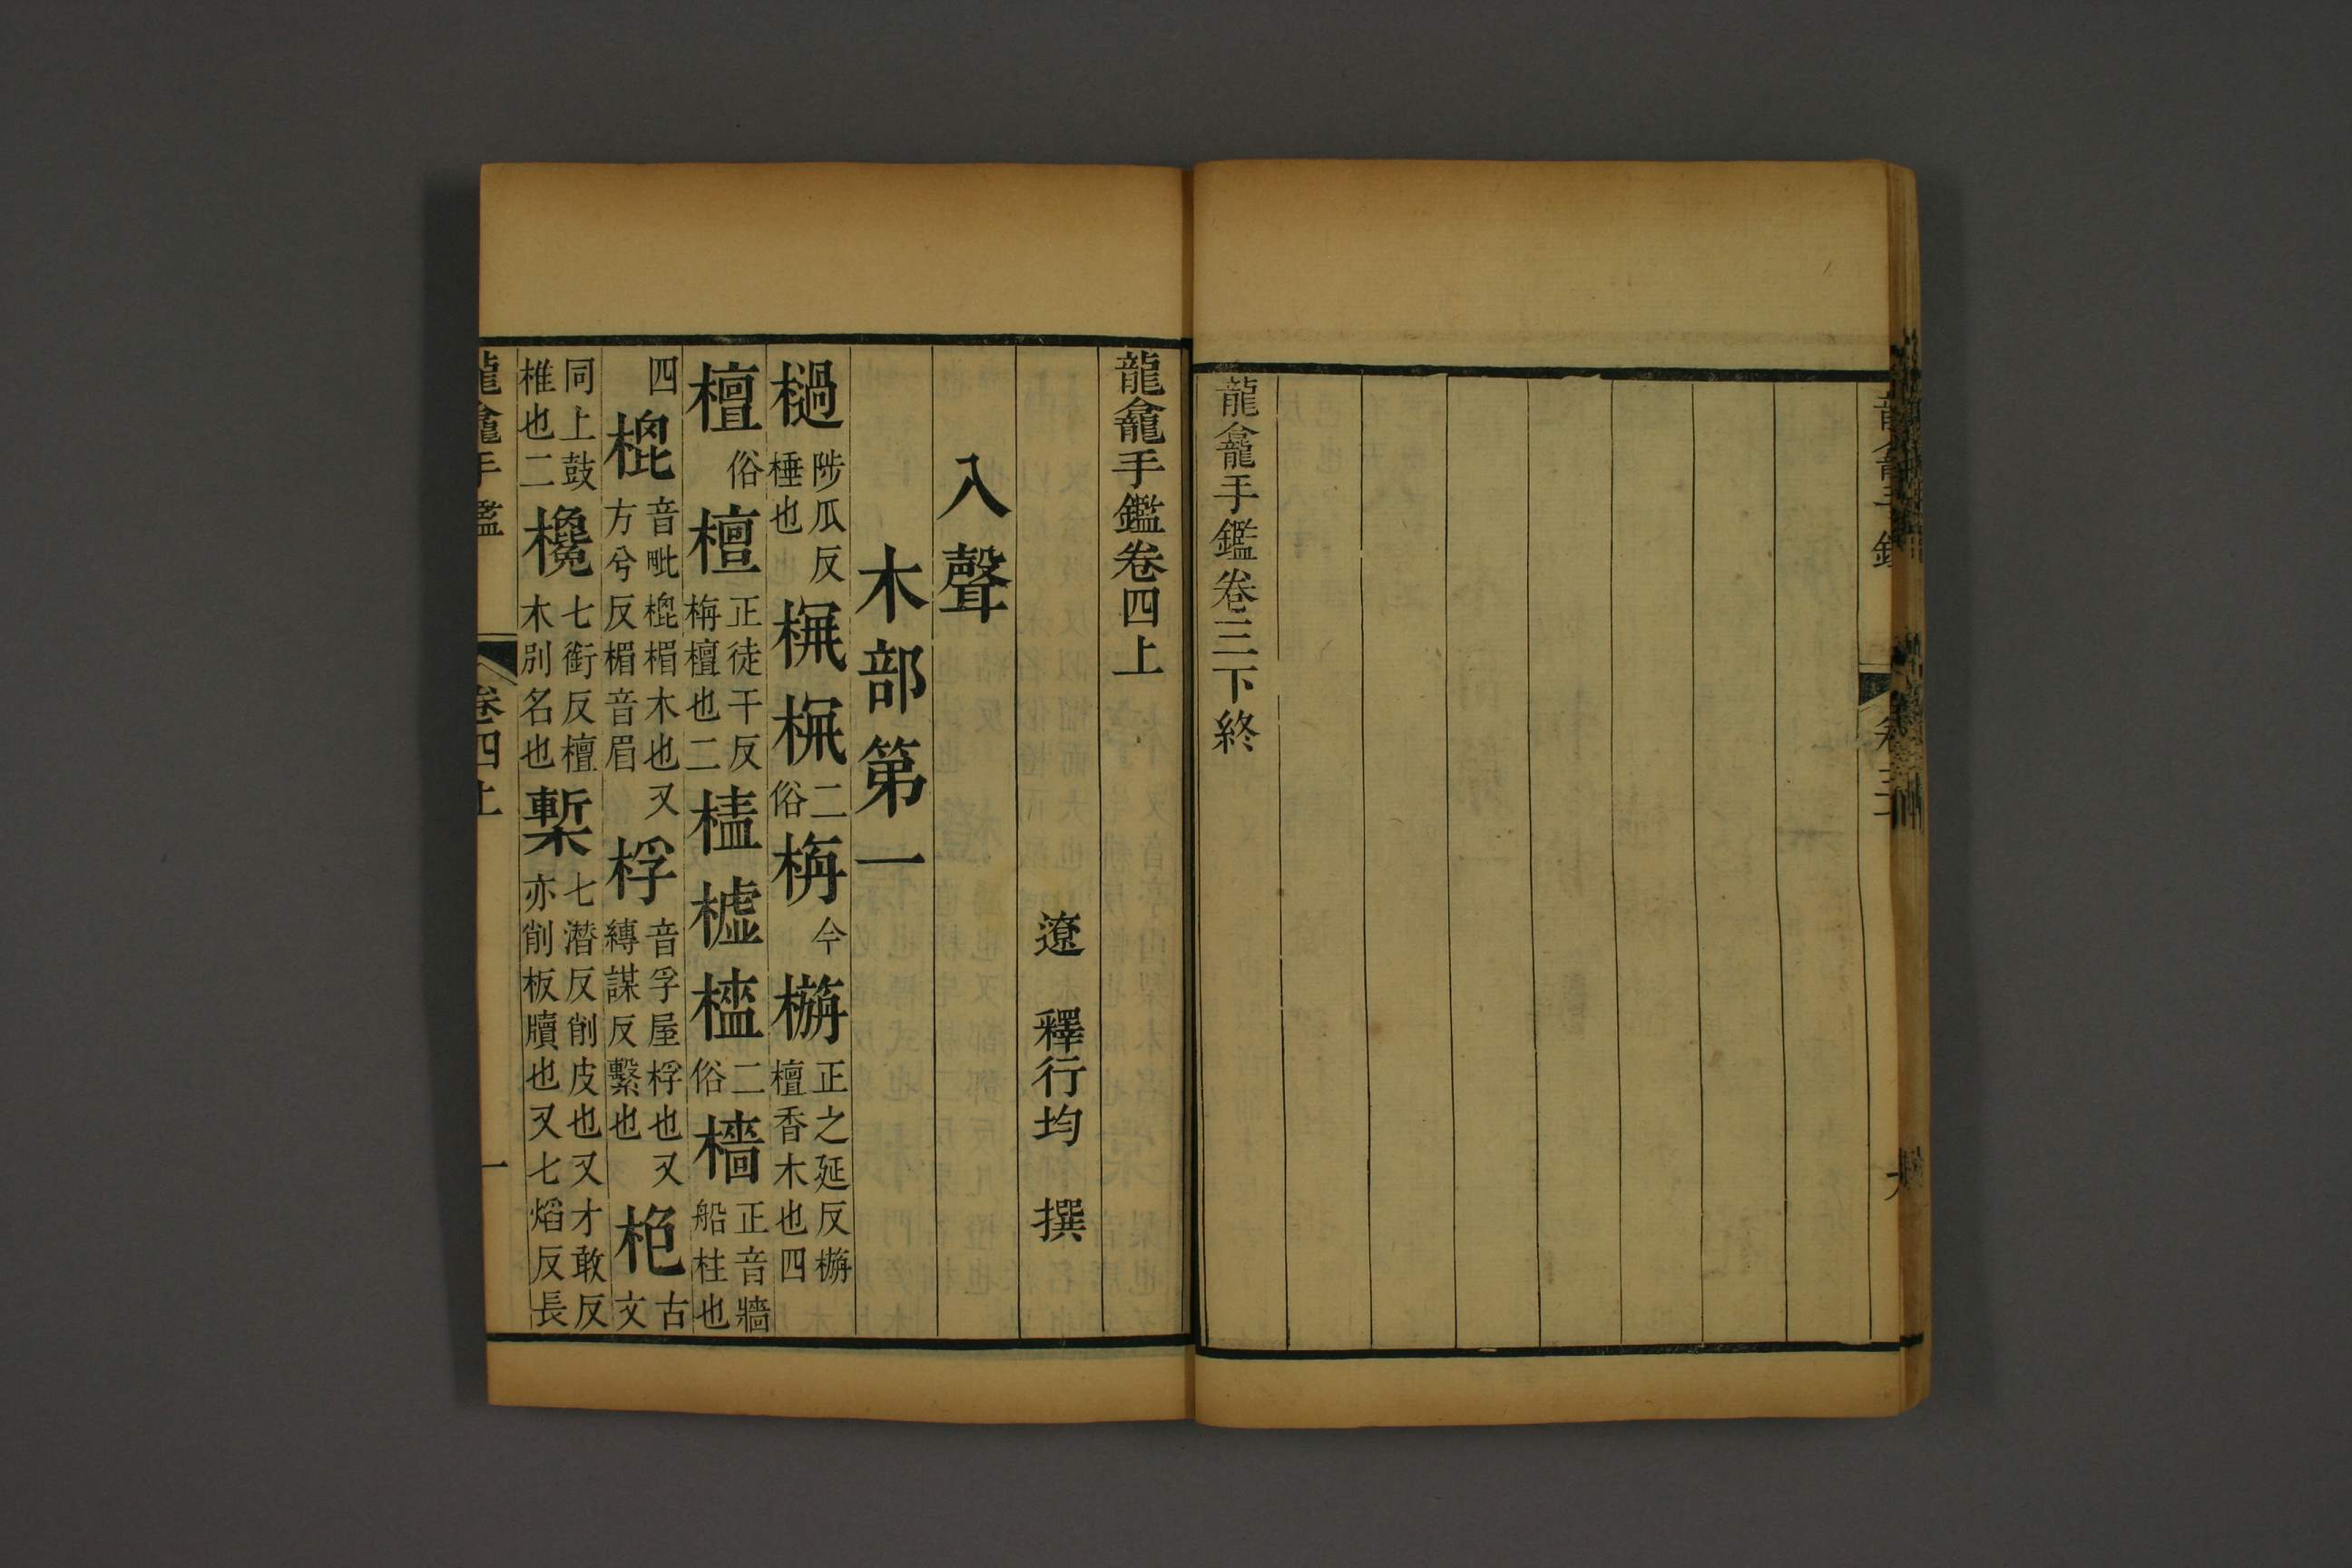 龍龕手鑑
龍龕手鑑卷三下終
龍龕手鑑卷四上
遼 釋行均 撰
入聲
木部第一
檛陟瓜反棰也 栴今 正之延反檀香木也四
檀俗檀正徒干反栴檀也二 二俗檣正音牆船柱也
四㮰音毗㮰楣木也又方兮反楣音眉桴音孚屋桴也又縛謀反繫也 古文
同上鼓椎也二欃七銜反檀木別名也槧七潛反削皮也又才敢反亦削板牘也又七焰反長
龍龕手鑑 卷四上 一